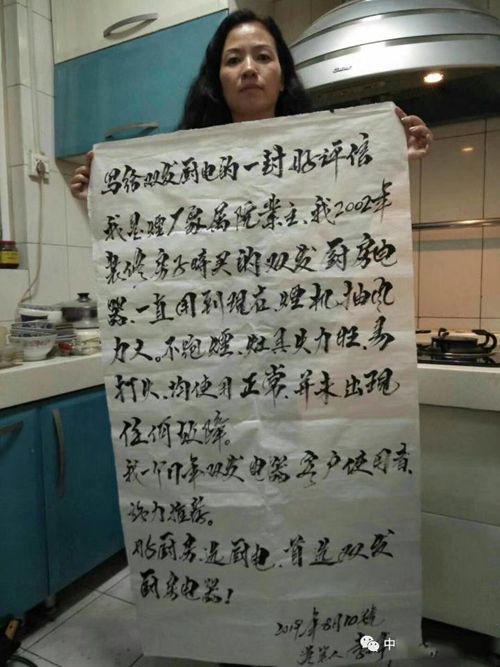 写给双发厨电的一封好评信
我是烟厂家属院业主、我2002年
装修房子时买的双发厨房电
器、一直用到现在、烟机、抽风
力大。不跑烟、灶具火力旺、易
打火、均使用正常、并未出现
任何故障。
我一个17年双发电器客户使用者、
强力推荐。
好厨房、选厨电、首选双发
厨房电器！
2019年8月10号
中